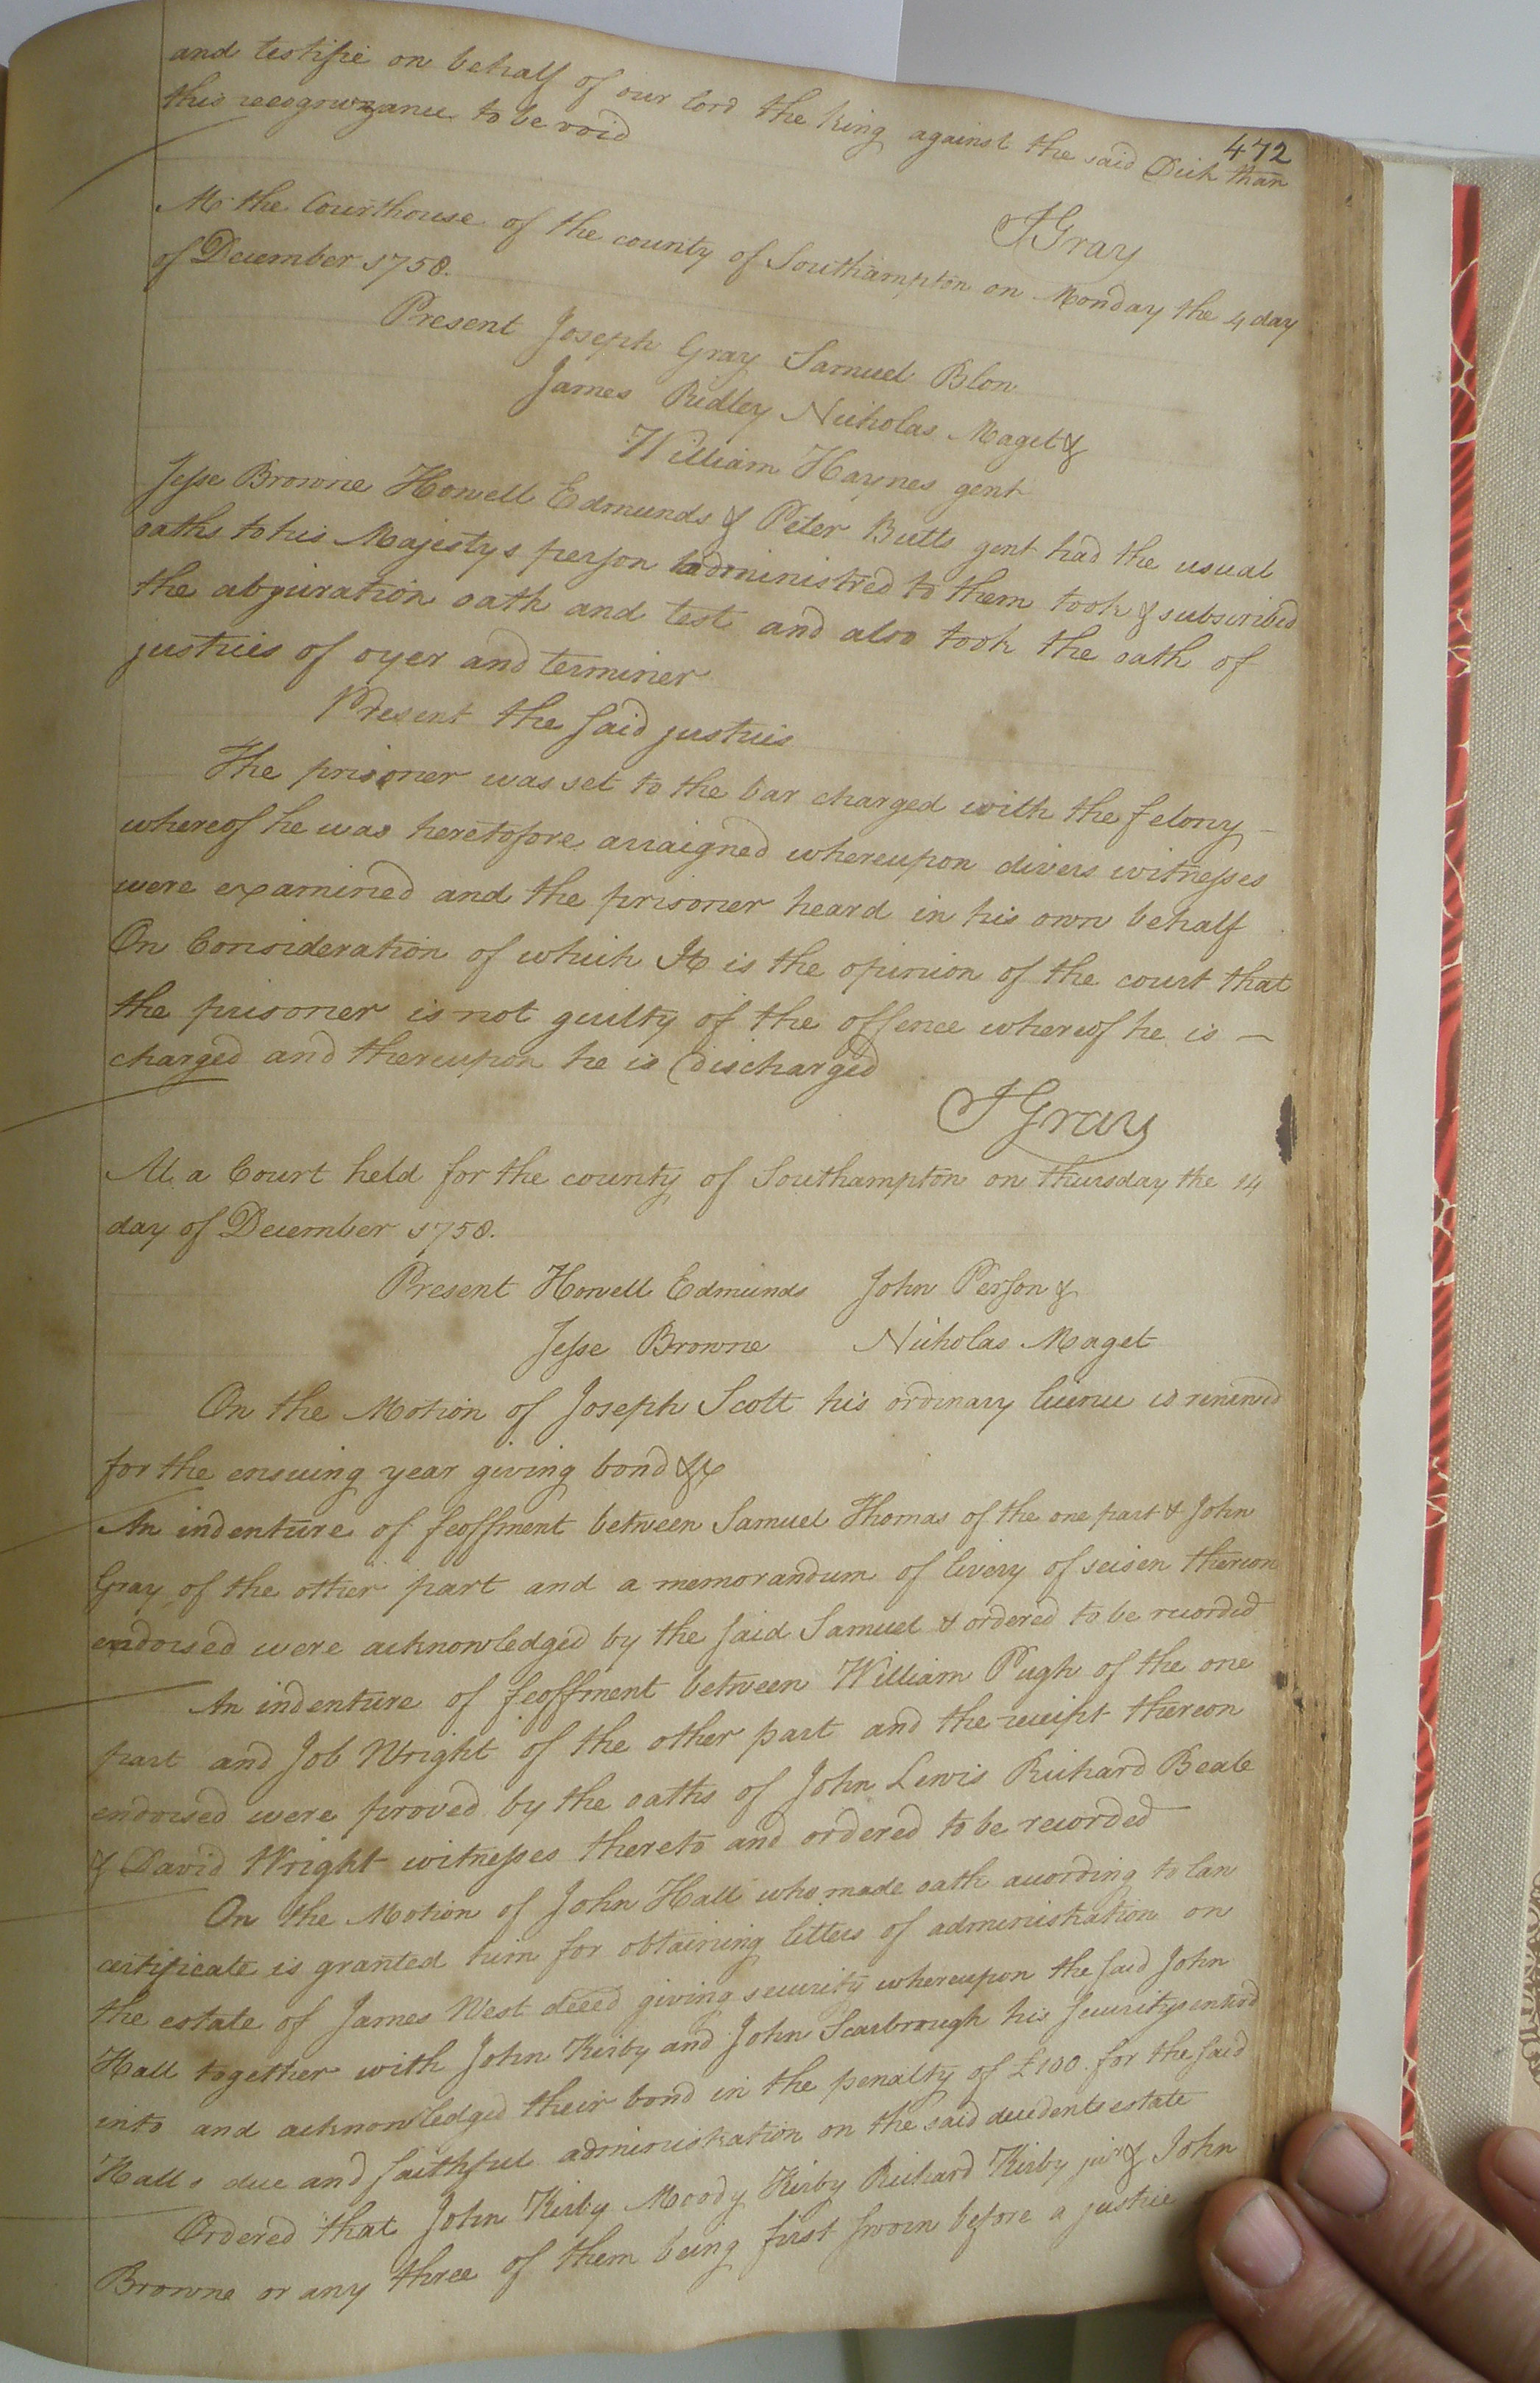 472
and testifie on behalf of our lord the King against the said Dick than
this recognizance to be void
JGray
At the Courthouse of the county of Southampton on Monday the 4 day
of December 1758.
Present Joseph Gray Samuel Blon
James Ridley Nicholas Maget &
William Haynes gent
Jesse Browne Howell Edmunds & Peter Butts gent had the usual
oaths to his Majestys person administred to them took & subscribed
the abjuration oath and test and also took the oath of
justices of oyer and terminer
Present the said justices
The prisoner was set to the bar charged with the felony
whereof he was heretofore arraigned whereupon divers witnesses
were examined and the prisoner heard in his own behalf
On Consideration of which It is the opinion of the court that
the prisoner is not guilty of the offence whereof he is —
charged and thereupon he is discharged
JGray
At a Court held for the county of Southampton on thursday the 14
day of December 1758.
Present Howell Edmunds John Person &
Jesse Browne Nicholas Maget
On the Motion of Joseph Scott his ordinary licence is renewed
for the ensuing year giving bond &c
An indenture of feoffment between Samuel Thomas of the one part & John
Gray of the other part and a memorandum of livery of seisen thereon
endorsed were acknowledged by the said Samuel & ordered to be recorded
An indenture of feoffment between William Pugh of the one
part and Job Wright of the other part and the receipt thereon
endorsed were proved by the oaths of John Lewis Richard Beale
& David Wright witnesses thereto and ordered to be recorded
On the Motion of John Hall who made oath according to law
certificate is granted him for obtaining letters of administration on
the estate of James West deced giving security whereupon the said John
Hall together with John Kirby and John Scarbrough his securitys entred
into and acknowledged their bond in the penalty of £100 for the said
Halls due and faithful administration on the said decedents estate
Ordered that John Kirby Moody Kirby Richard Kirby junr & John
Browne or any three of them being first sworn before a justice